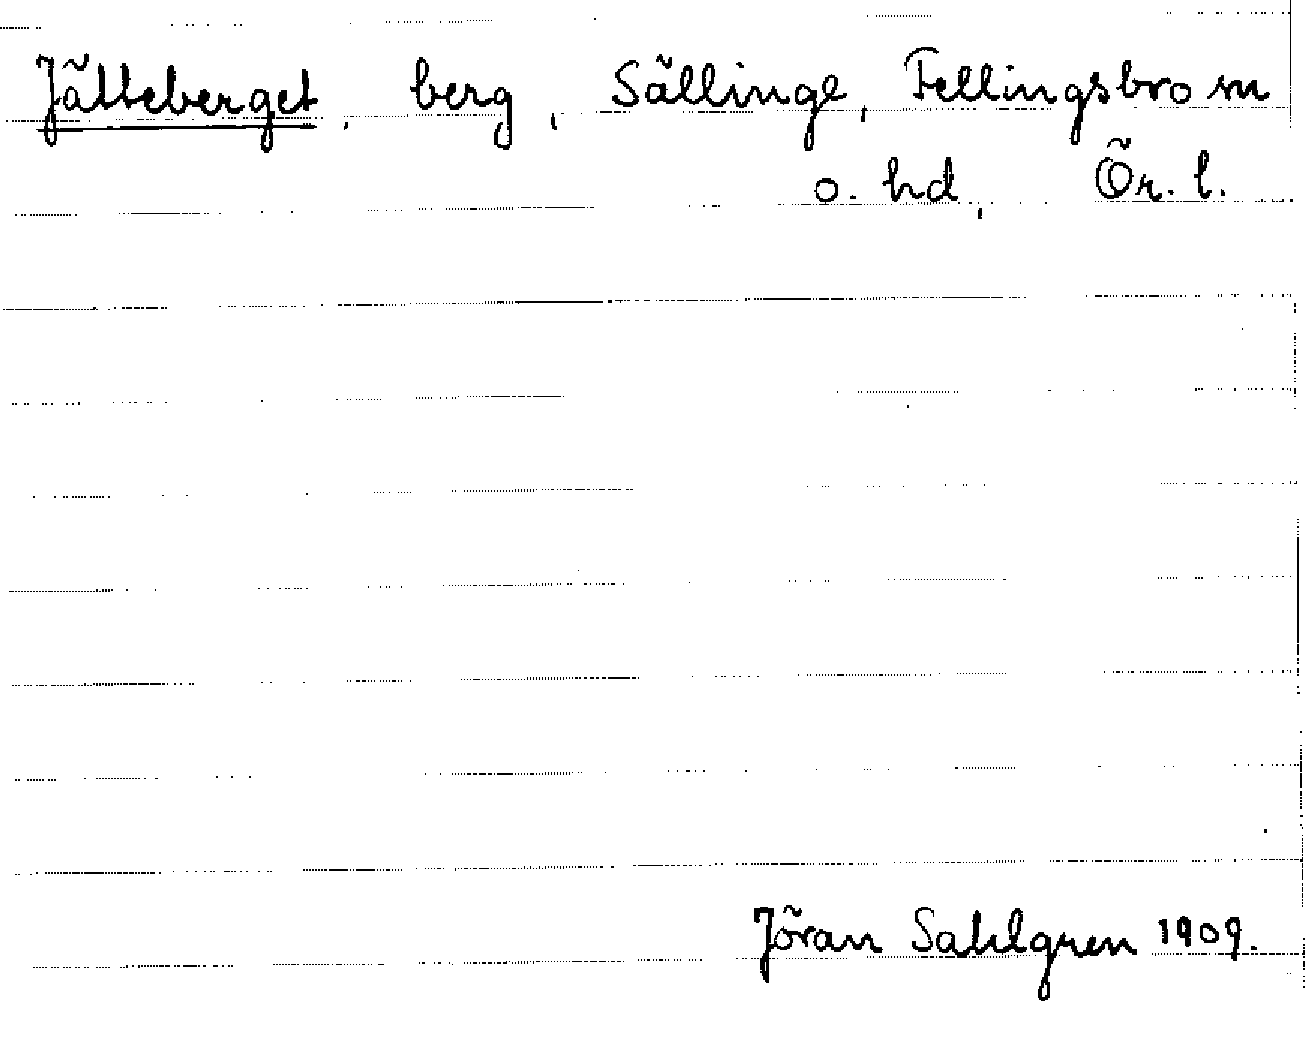 Jätteberget, berg, Sällinge, Fellingsbro sn
o. hd, Ör. l.
Jöran Sahlgren 1909.